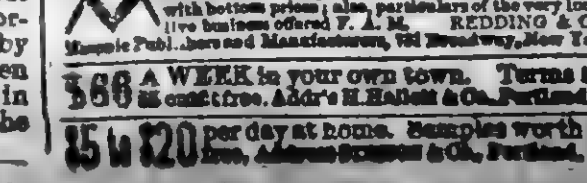 or-
by
en
in
be
with bottom prices; also, particulars of the very
tive business offered F. A. M. REDDING &
Masonic Publishers and Manufacturers, Broadway, New
$66 A WEEK in your own town. Terms
free. Addr's H. Hallett & Co., Portland
$5 to $20 per day at home. Samples worth
free. Address & Co., Portland,